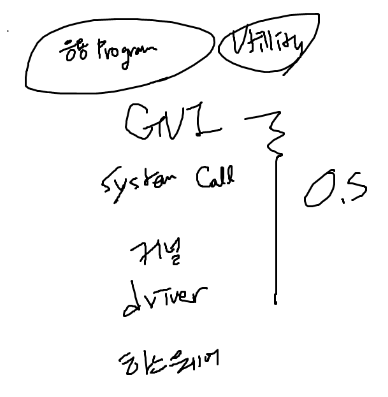 응용 Program Utility
GUI
System Call
O.S
커널
driver
하드웨어